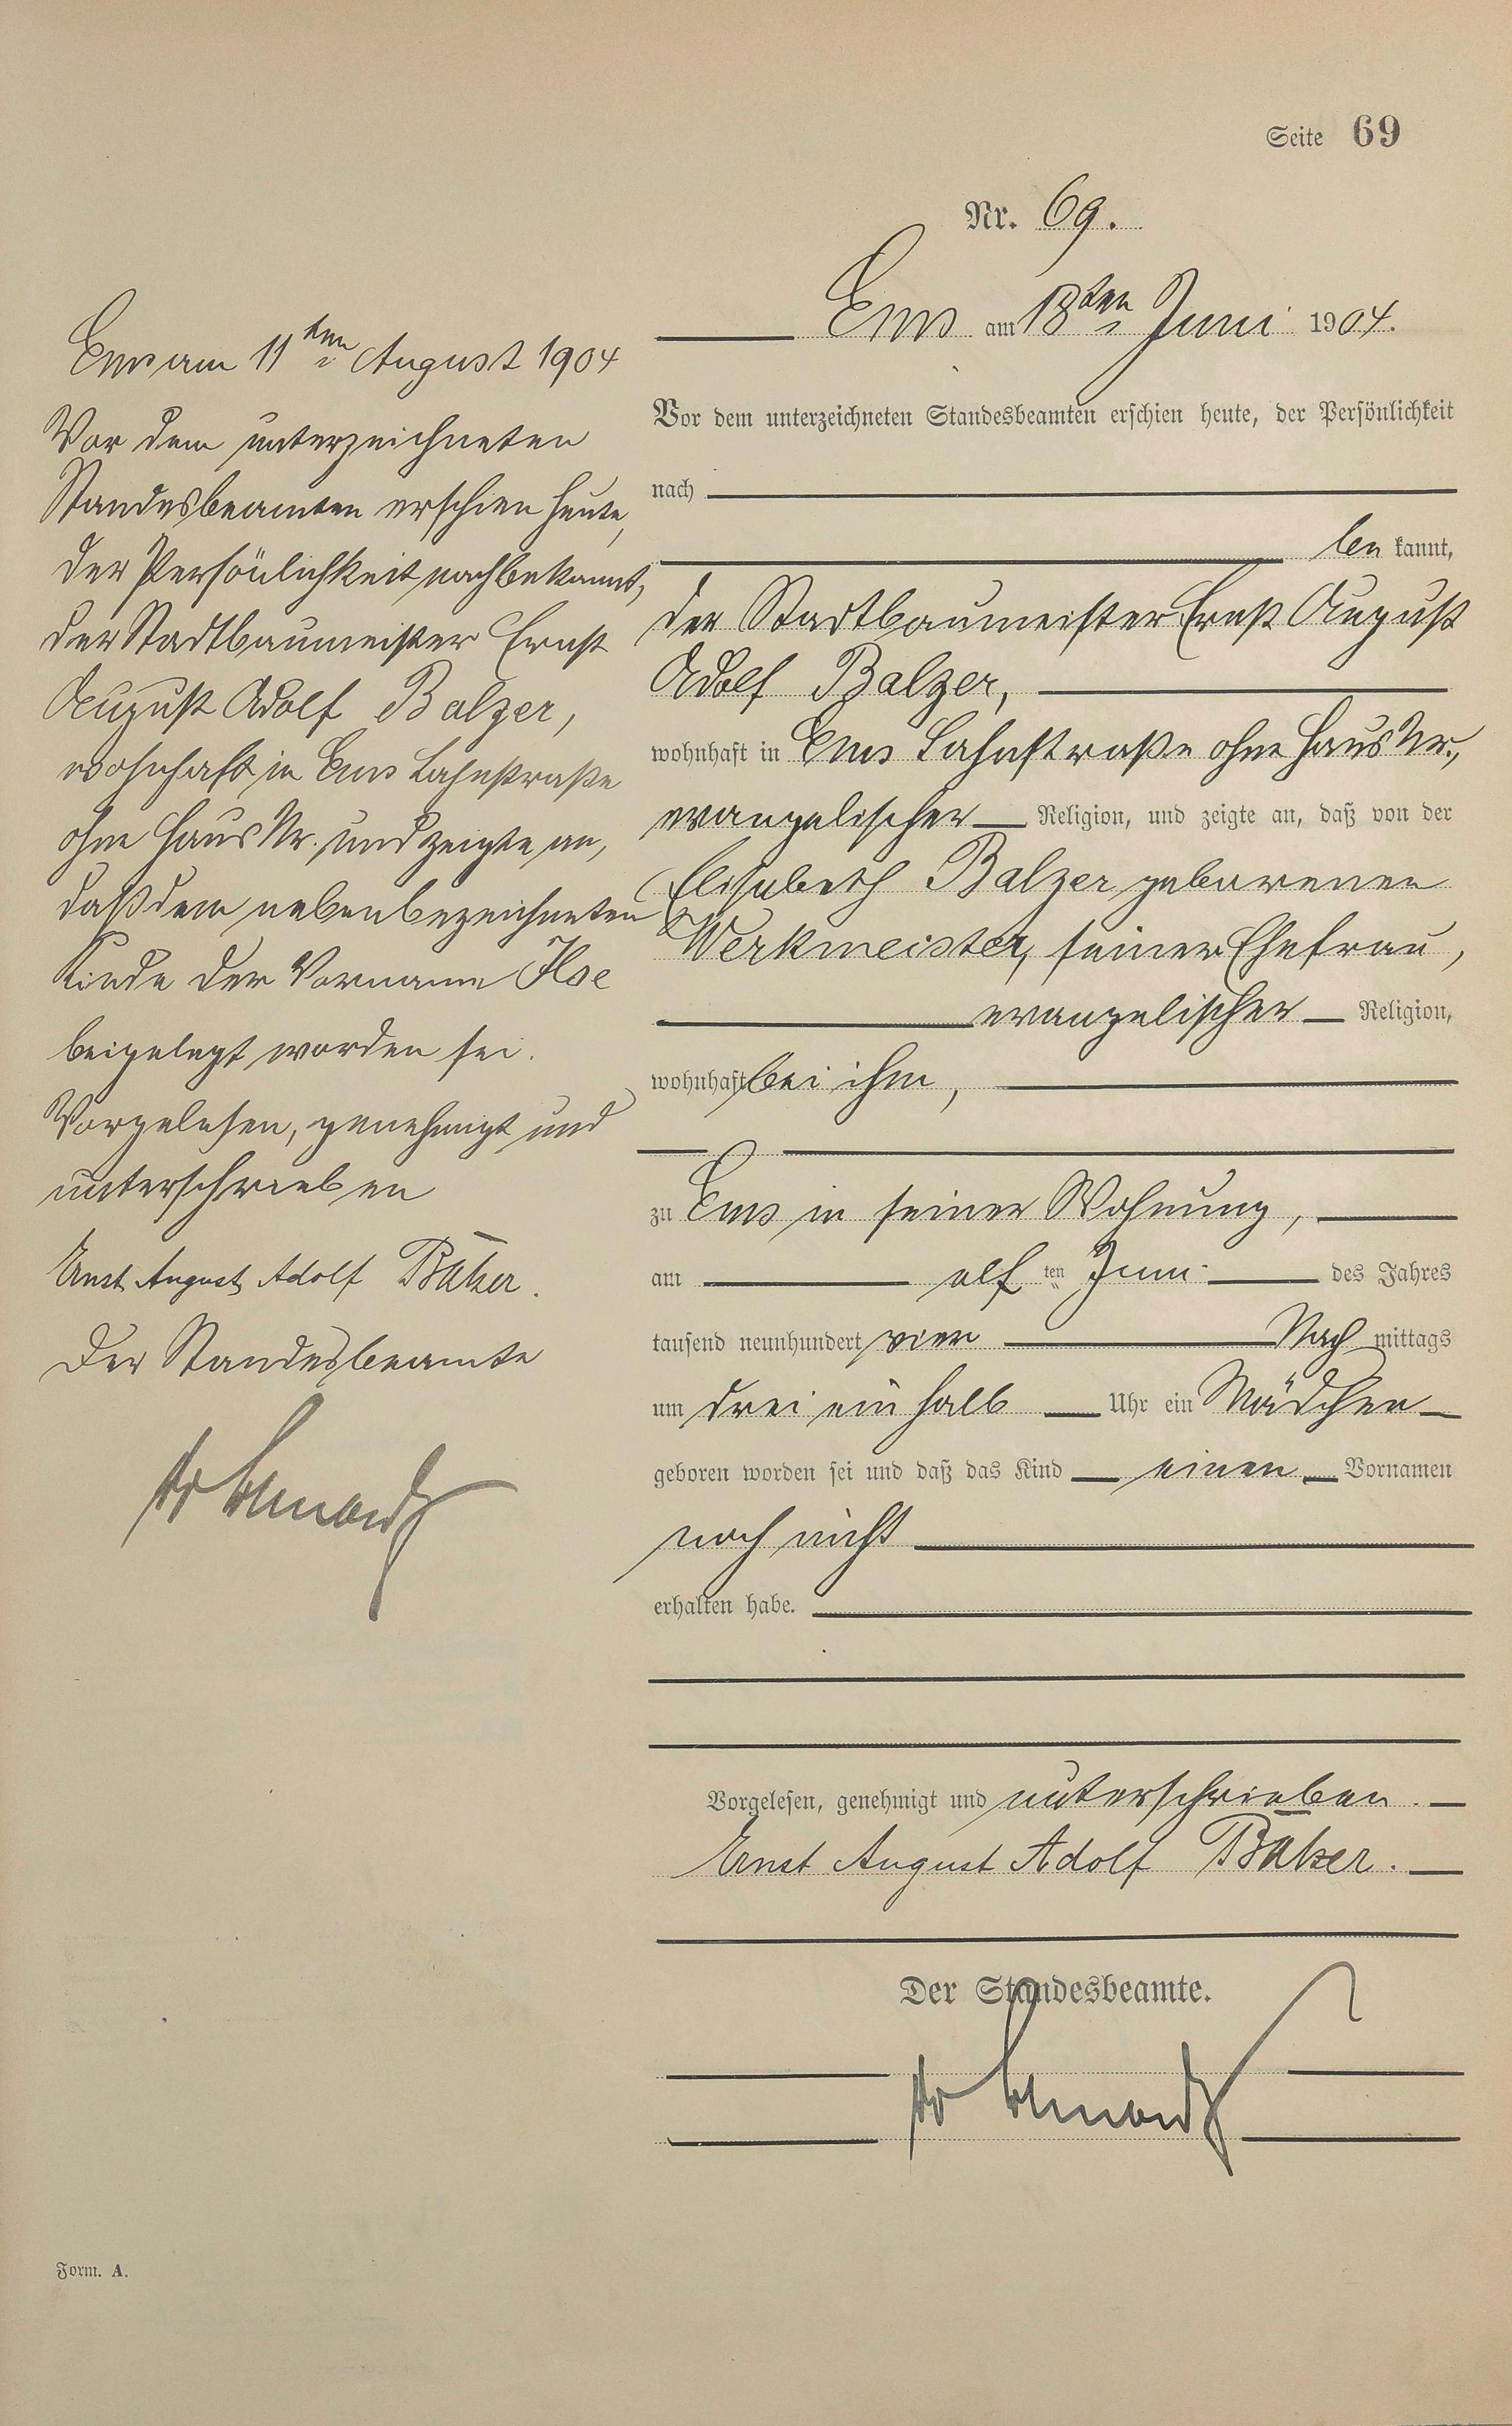 Seite 69
Nr. 69.
Ems am 13ten Juni 1904.
Vor dem unterzeichneten Standesbeamten erschien heute, der Persönlichkeit
nach
be kannt,
der Stadtbaumeister Ernst August
Adolf Balzer,
wohnhaft in Ems Lahnstraße ohne Haus Nr.,
evangelischer Religion, und zeigte an, daß von der
Elisabeth Balzer geborenen
Werkmeister, seiner Ehefrau,
evangelischer Religion,
wohnhaft bei ihm,
zu Ems in seiner Wohnung,
am elf ten Juni des Jahres
tausend neunhundert vier Nach mittags
um drei ein halb Uhr ein Mädchen
geboren worden sei und daß das Kind einen Vornamen
noch nicht
erhalten habe.
Vorgelesen, genehmigt und unterschrieben.
Ernst August Adolf Balzer.
Der Standesbeamte.
Ems am 11ten August 1904
Vor dem unterzeichneten
Standesbeamten erschien heute,
der Persönlichkeit nach bekannt,
der Stadtbaumeister Ernst
August Adolf Balzer,
wohnhaft in Ems Lahnstraße
ohne Haus Nr. und zeigte an,
daß dem nebenbezeichneten
Kinde der Vorname Ilse
beigelegt worden sei.
Vorgelesen, genehmigt und
unterschrieben
Ernst August Adolf Balzer.
Der Standesbeamte
Form. A.